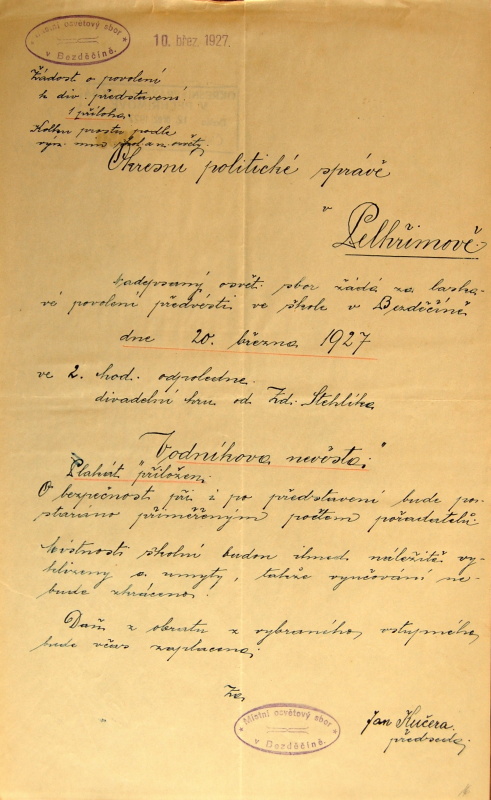 Místní osvětový sbor
v Bezděčíně.
10. břez. 1927.
Žádost o povolení
k div. představení.
1 příloha.
Kolku prosto podle
výn. min. škol. a n. osvěty.
Okresní politické správě
v
Pelhřimově.
Nadepsaný osvět. sbor žádá za laska-
vé povolení předvésti ve škole v Bezděčíně
dne 20. března 1927
ve 2. hod. odpoledne.
divadelní hru od Zd. Stehlíka
"Vodníkova nevěsta."
Plakát přiložen.
O bezpečnost při i po představení bude po-
staráno přiměřeným počtem pořadatelů.
Místnosti školní budou ihned náležitě vy-
klizeny a umyty, takže vyučování ne-
bude zkráceno.
Daň z obratu z vybraného vstupného
bude včas zaplacena.
Za
Místní osvětový sbor
v Bezděčíně.
Jan Kučera.
předseda.